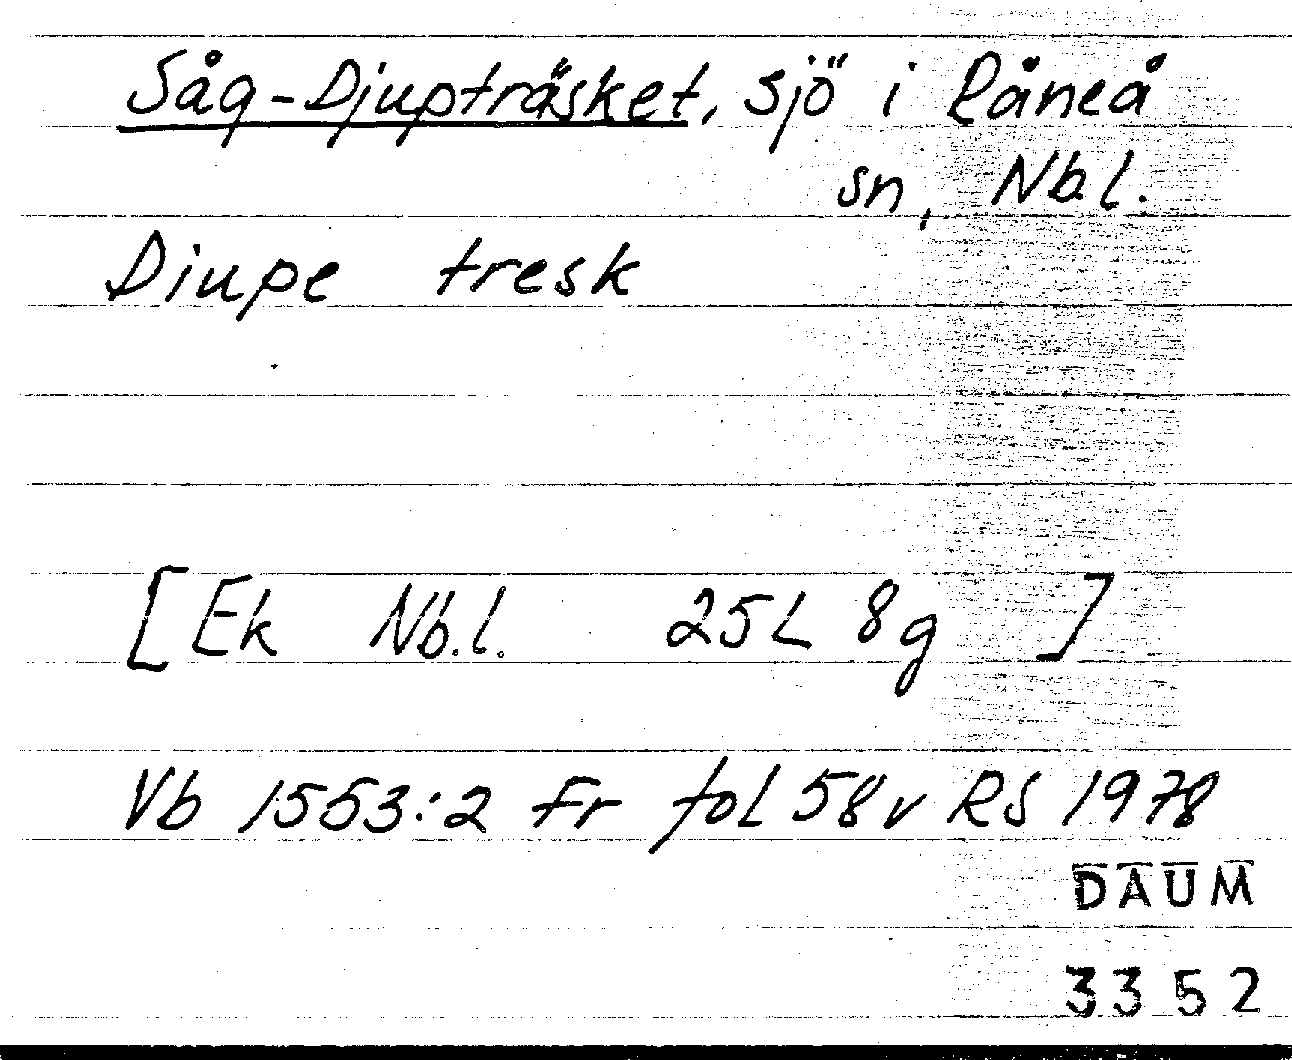 Såg-Djupträsket, sjö i Råneå
sn, Nb.l.
Diupe tresk
[Ek Nb.l. 25L 8g ]
Vb 1553:2 Fr fol 58v RS 1978
DAUM
3352